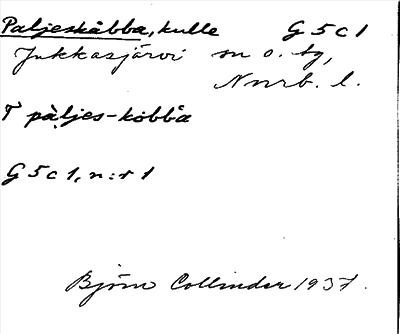 Paljeskåbba, kulle G 5 c 1
Jukkasjärvi sn o. tg,
Nnrb. l.
T pàljes-kòbbȧ
G 5 c 1, n:r 1
Björn Collinder 1937.